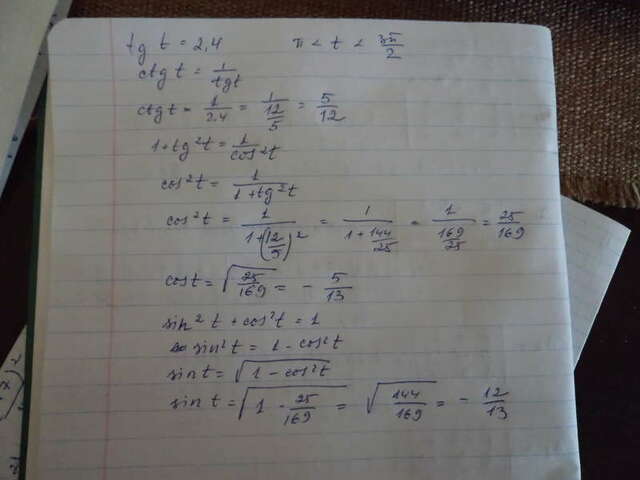 tg t = 2,4    π < t < 3π/2
ctg t = 1/tgt
ctgt = 1/2.4 = 1/(12/5) = 5/12
1+tg²t = 1/cos²t
cos²t = 1/(1+tg²t)
cos²t = 1/(1+(12/5)²) = 1/(1+144/25) = 1/(169/25) = 25/169
cost = √(25/169) = - 5/13
sin²t + cos²t = 1
sin²t = 1 - cos²t
sint = √(1 - cos²t)
sint = √(1 - 25/169 =) √(144/169) = - 12/13